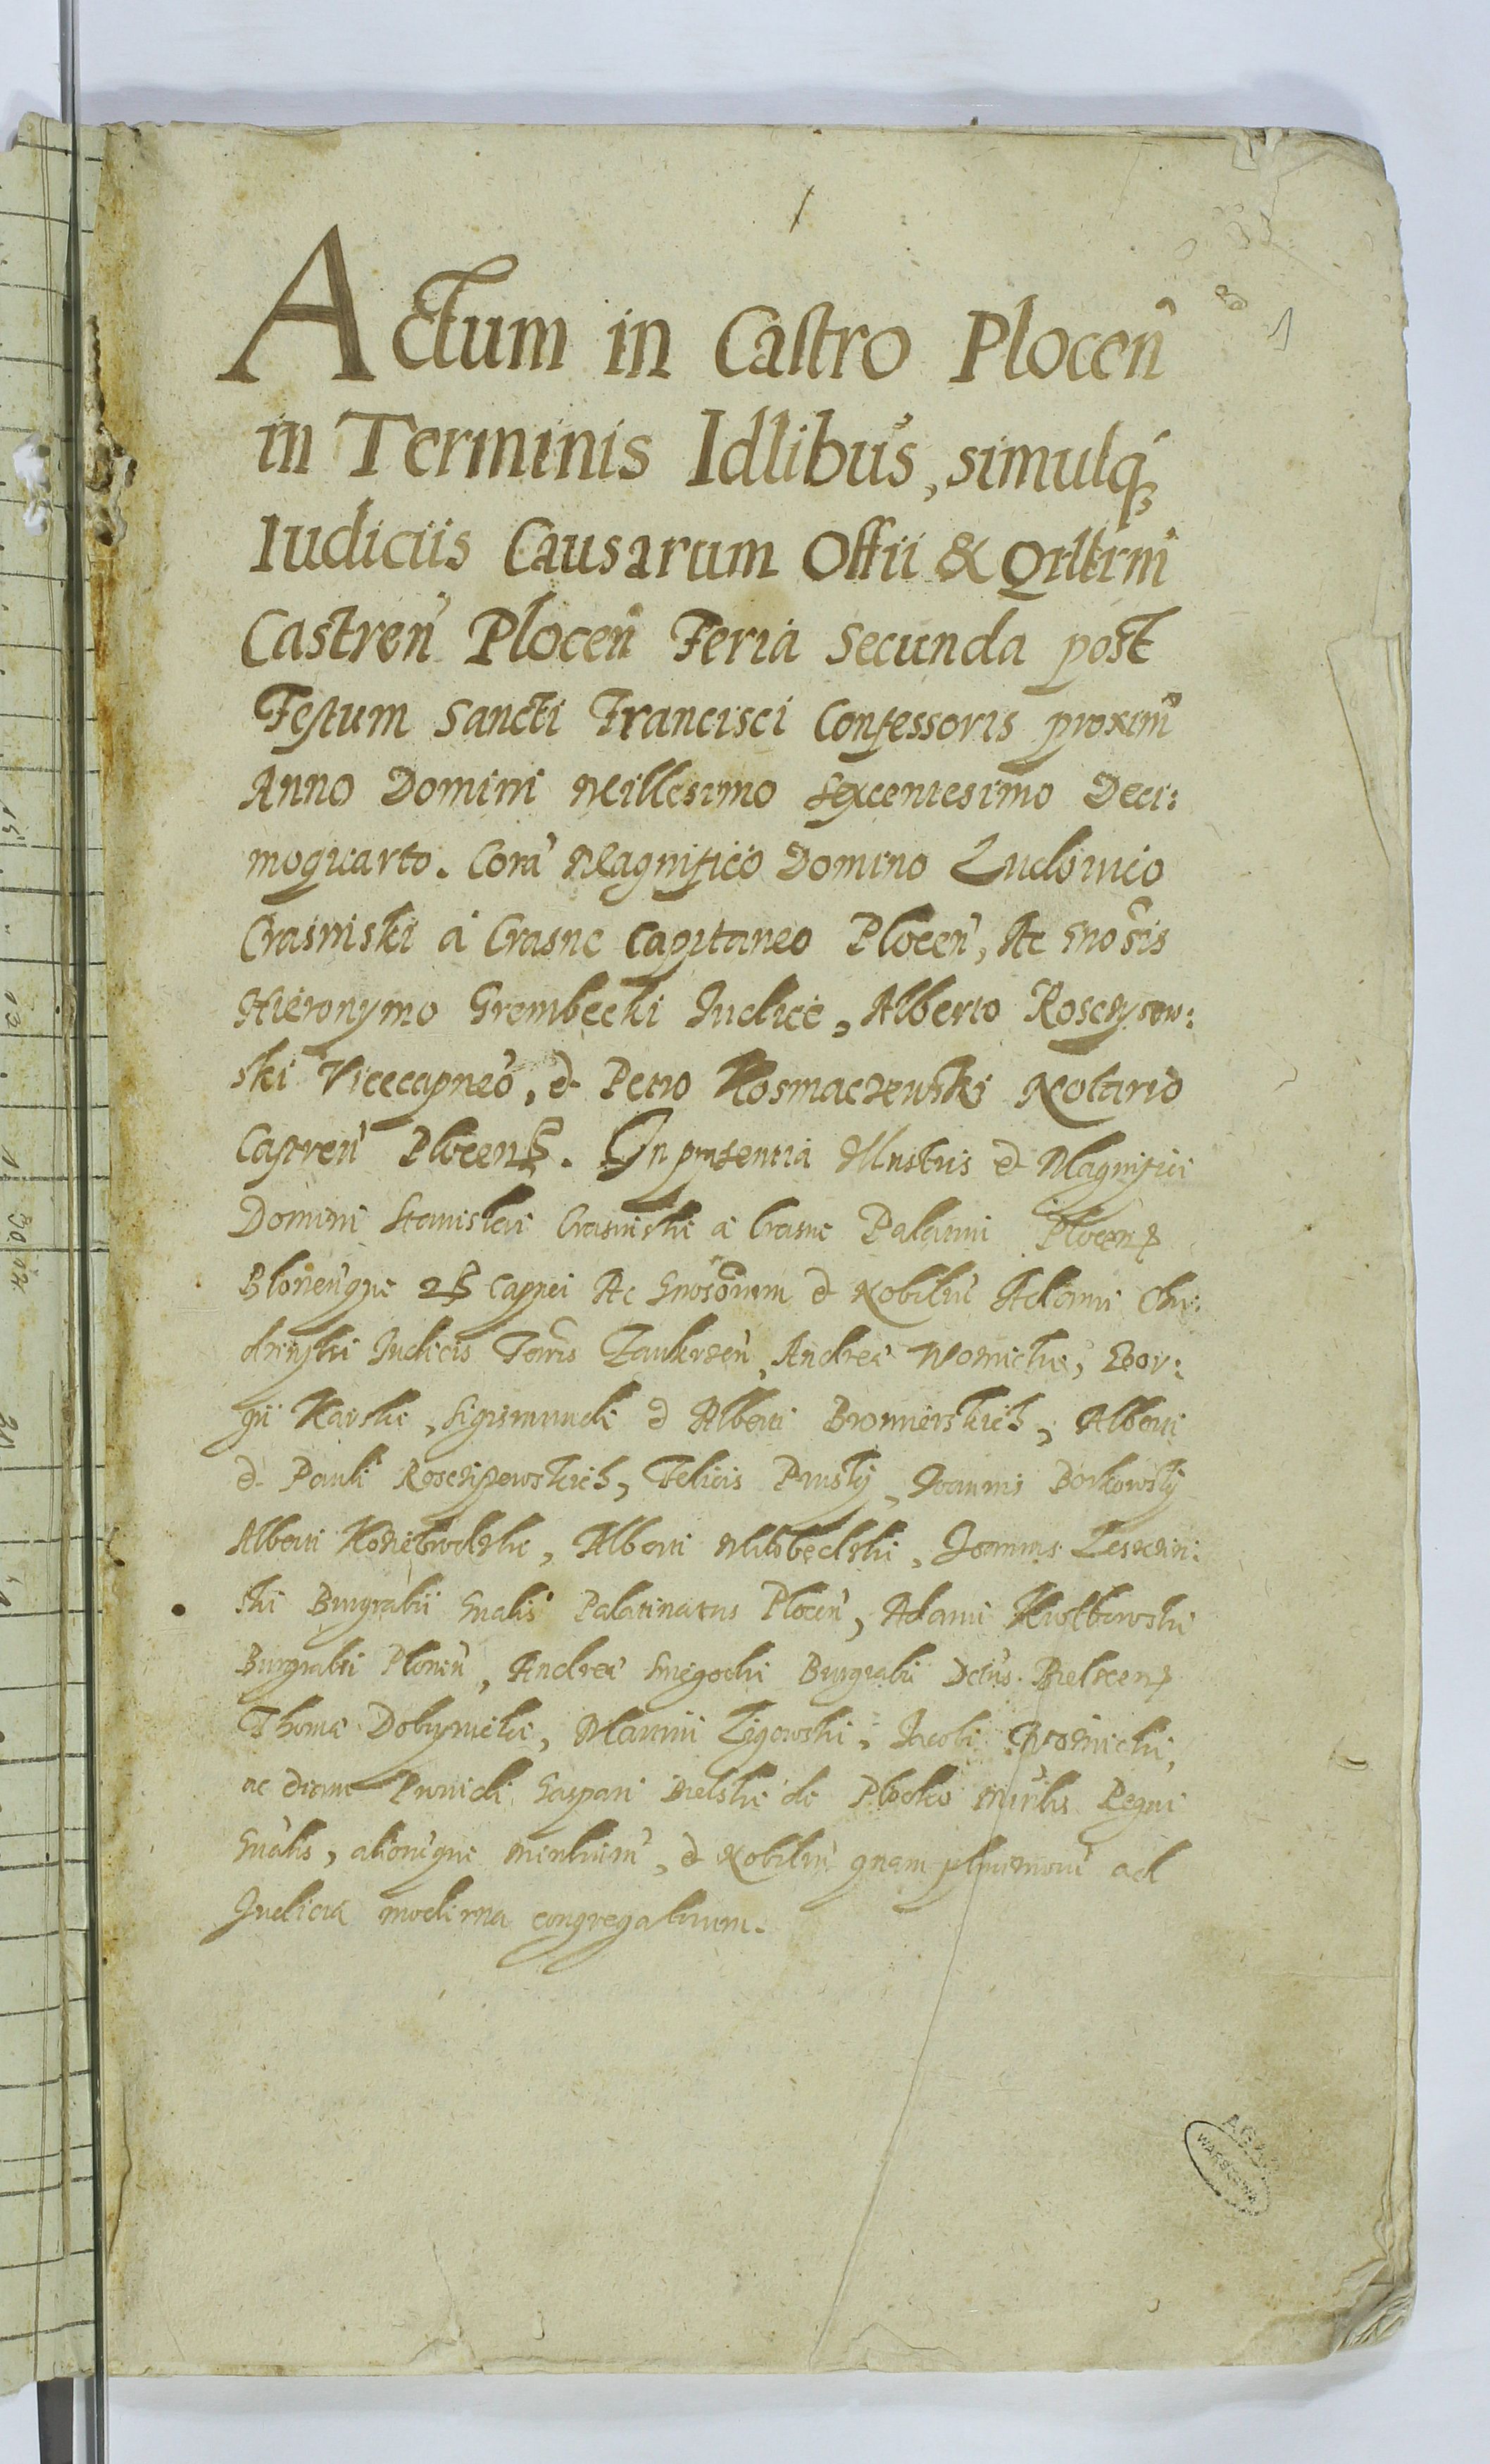 1
Actum in Castro Plocen̄
in Terminis Idlibus, simulq́ꝫ
Iudiciis Causarum Offii & Qrltrm̄
Castren̄ Plocen̄ Feria Secunda post
Festum Sancti Francisci Confessoris proxim̄
Anno Domini Millesimo Sexcentesimo Deci:
moquarto. Corā Magnifico Domino Ludovico
Crasinski à Crasne Capitaneo Plocen̄, Ac Gnosis
Hieronymo Grembecki Iudice, Alberto Rosczyssew:
ski Vicecapneo, & Petro Kosmaczewski Notario
Castren̄ Plocens. In presentia Illustris & Magnifici
Domini Stanislai Crasinski a Crasne Palatini Plocens
Blonen̄que Capnei Ac Gnosorum & Nobiliū Adami Chu:
drinski Iudicis Terris Zaukrzen̄, Andreæ Wornicki, Geor:
gii Karski, Sigismundi & Alberti Bromierskich, Alberti
& Pauli Rosciszewskich, Felicis Pruski, Joannis Borkowski
Alberti Koziebrodzki, Alberti Milobędzki, Joannis Leszczin:
ski Burgrabii Gnalis Palatinatus Plocen̄, Adami
Burgrabii Plonen̄, Andreæ Burgrabii Bielscens
Thomæ Martini Zigowski, Jacobi
ac etiam Providi Gaspari Bielski de Plocko Regni
Gnalis, alionq̄ue & Nobiliū quam plurimorū ad
Judicia moderna congregatorum.
AGAD
WARSZAWA